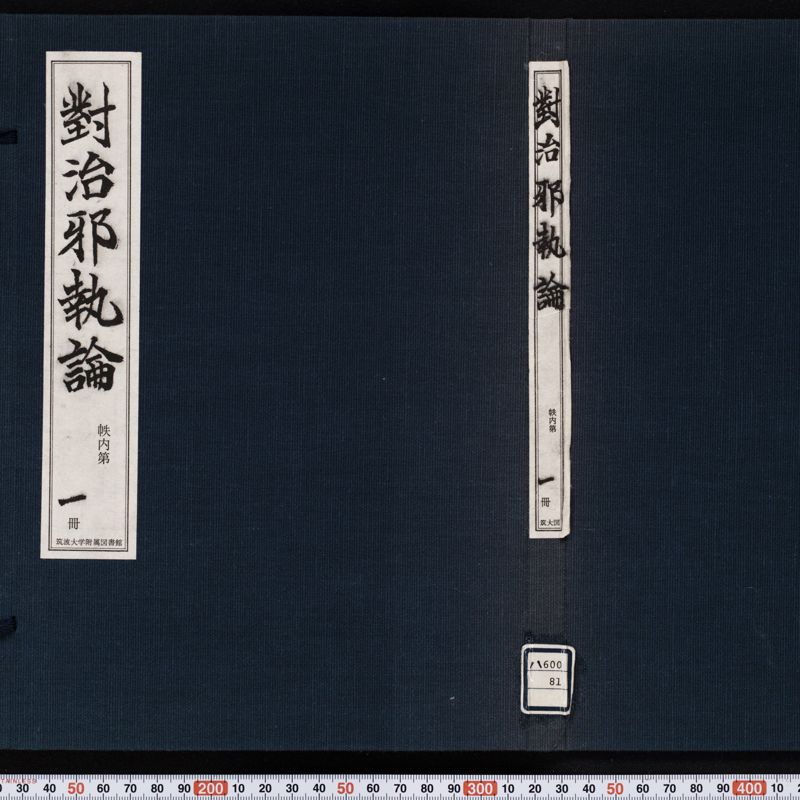 對治邪執論
帙内第
一
冊
筑波大学附属図書館
對治邪執論
帙内第
一
冊
筑大図
ハ600
81
STAINLESS
20 30 40 50 60 70 80 90 200 10 20 30 40 50 60 70 80 90 300 10 20 30 40 50 60 70 80 90 400 10